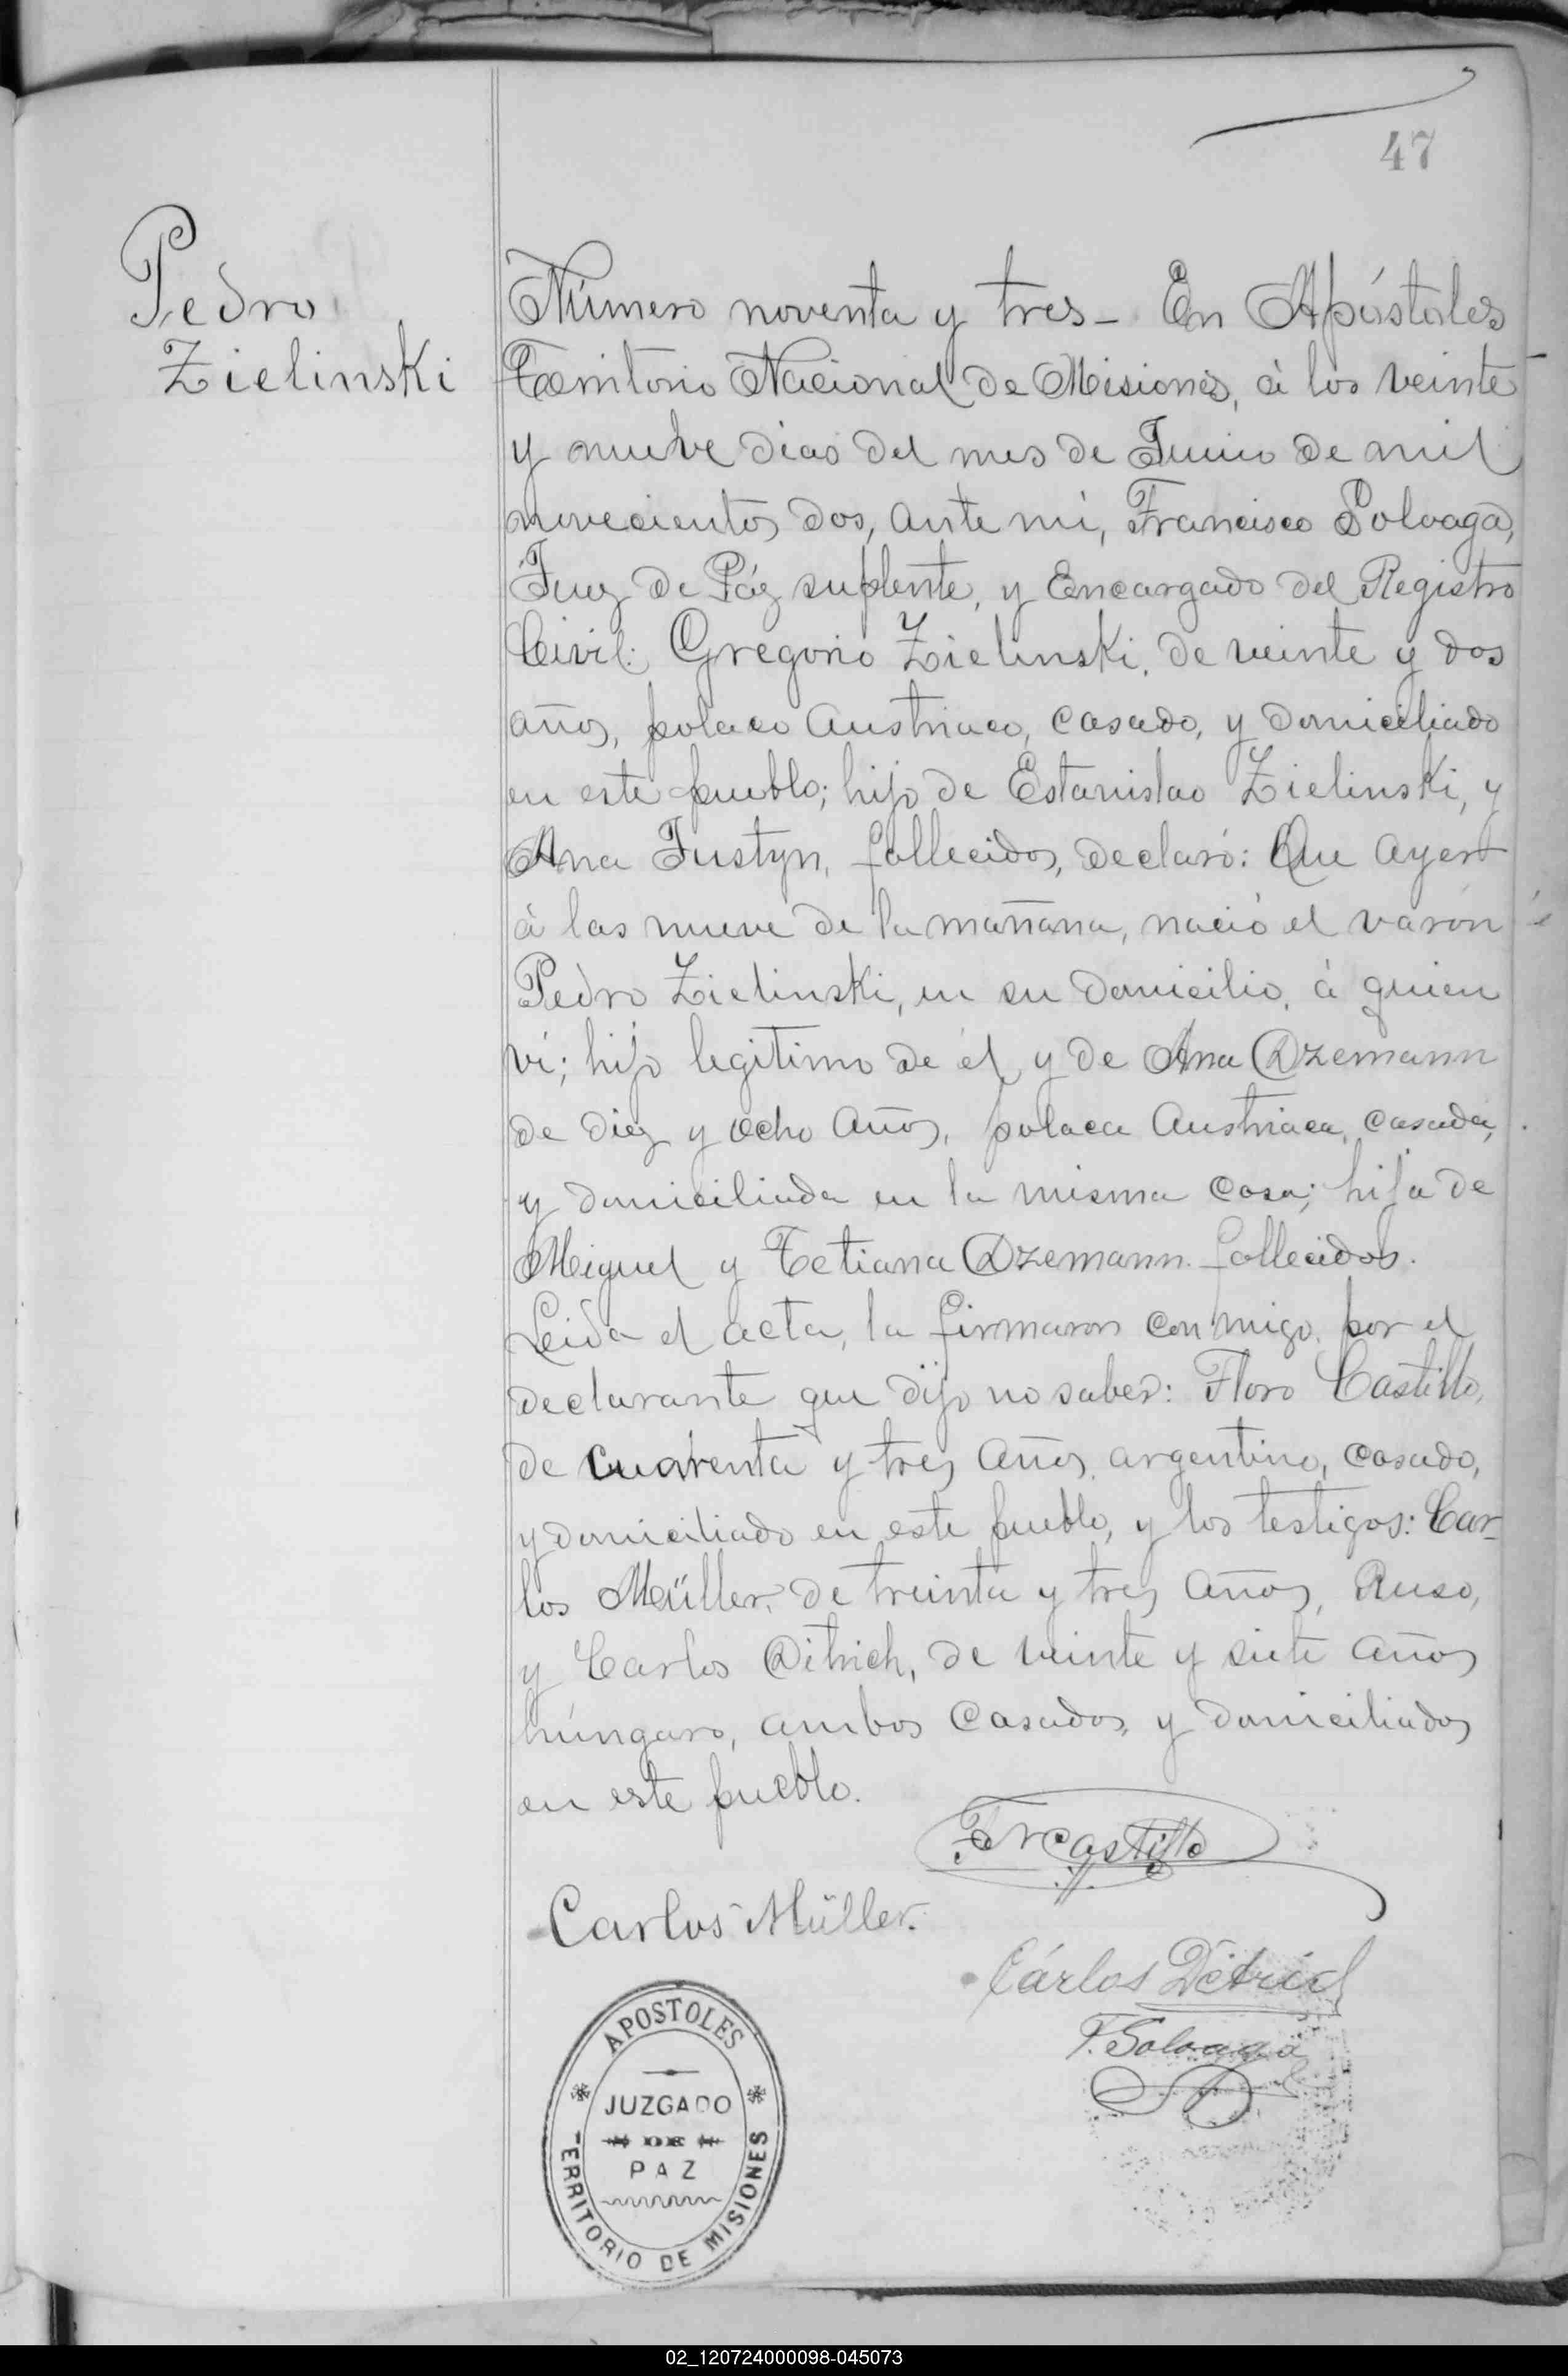 47
Pedro
Zielinski
Número noventa y tres- En Apóstoles
Territorio Nacional de Misiones, á los veinte
y nueve dias del mes de Junio de mil
novecientos dos, ante mi, Francisco Solvaga,
Juez de Páz suplente, y Encargado del Registro
Civil: Gregorio Zielinski, de veinte y dos
años, polaco austriaco, casado, y domiciliado
en este pueblo; hijo de Estanislao Zielinski, y
Ana Justyn, fallecidos, declaró: Que ayer
á las nueve de la mañana, nació el varón
Pedro Zielinski, en su domicilio, á quien
vi; hijo legitimo de él y de Ana Dzemann
de diez y ocho años, polaca austriaca, casada,
y domiciliada en la misma casa; hija de
Miguel y Tetiana Dzemann. fallecidos.
Leida el acta, la firmaron conmigo, por el
declarante que dijo no saber: Floro Castillo,
de cuarenta y tres años, argentino, casado,
y domiciliado en este pueblo, y los testigos: Car-
los Müller, de treinta y tres años, Ruso,
y Carlos Ditrich, de veinte y siete años
húngaro, ambos casados, y domiciliados
en este pueblo.
Carlos Müller.
Cárlos Détrich
F. Solvaga
APOSTOLES
JUZGADO
DE
PAZ
TERRITORIO DE MISIONES
02_120724000098-045073